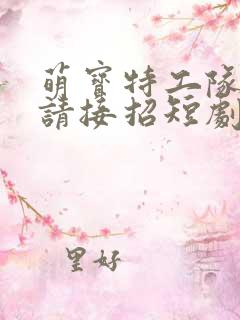 萌寶特工隊
請接招短劇
里好